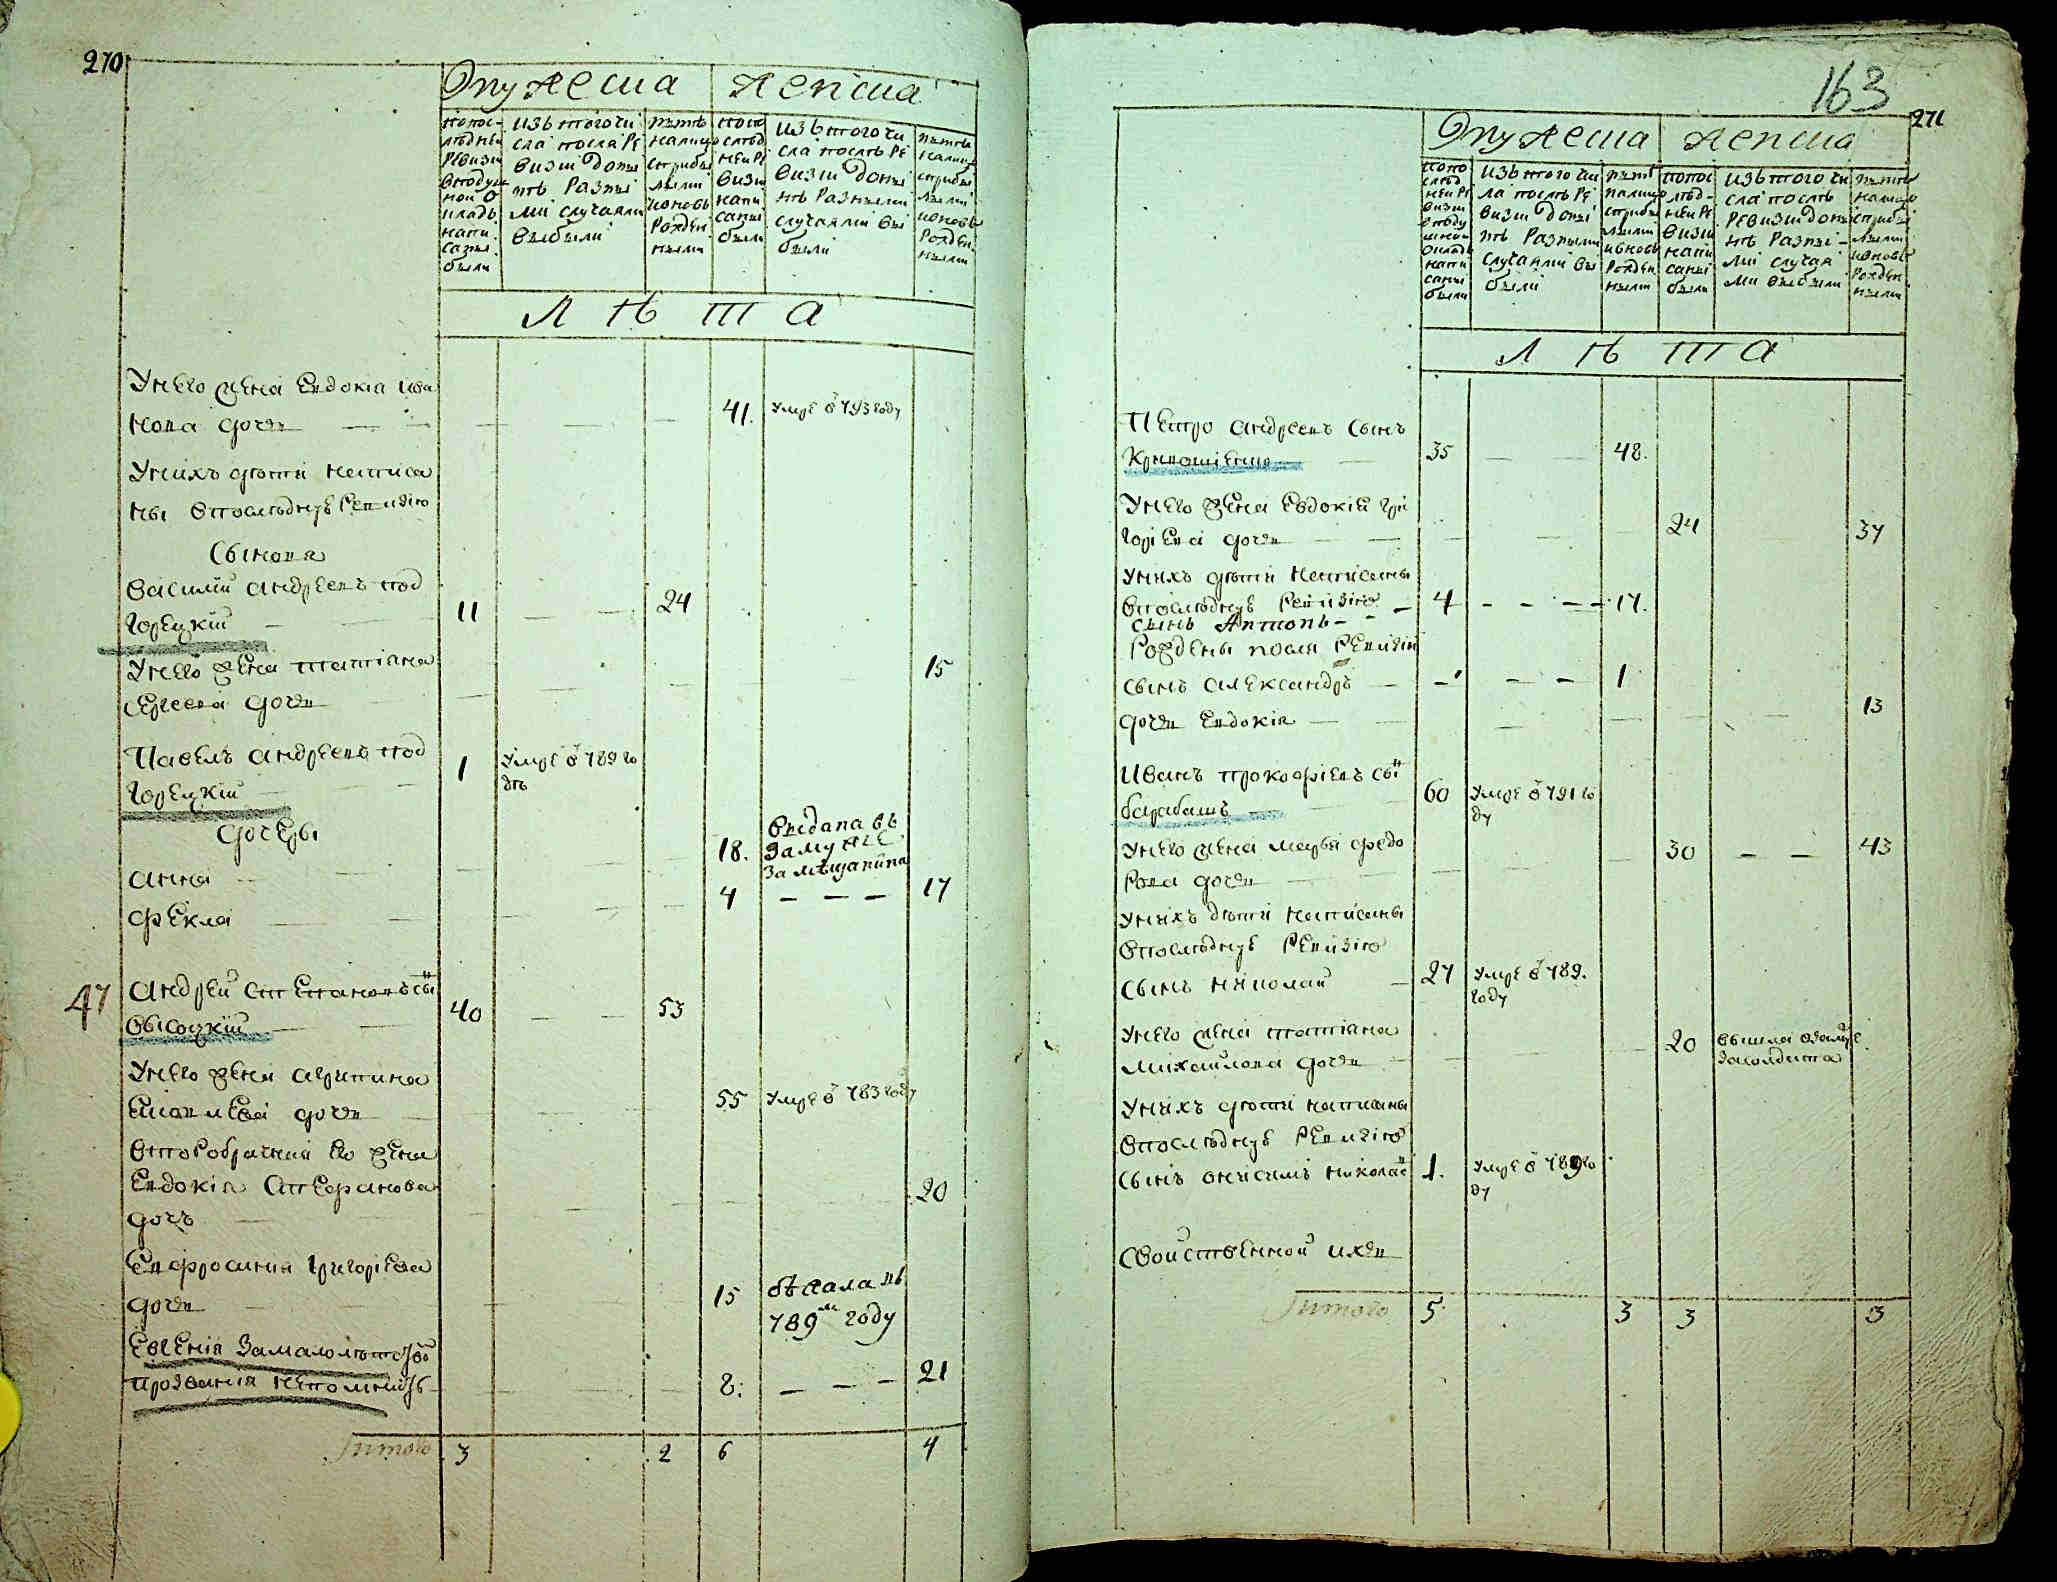 270
О мужеска женска
попос-
лѣдней
ревизи
вподуш
ной о
кладъ
напи
саны
были
изъ того чи
сла после ре
визіи доны
нѣ разны
ми случаями
выбыли
нынѣ
налицо
сприбы
лыми
ивновь
рожден
ными
попо
слѣд
ней ре
визи
напи
саны
были
изъ того чи
сла послѣ ре
визіи доны
нѣ разными
случаями вы
были
нынѣ
налицо
сприбы
лыми
ивновь
рожден
ными
Л Ѣ Т А
Унего жена Евдокіа Ива
нова дочь 41. умре в 793 году
Унихъ дѣти написа
ны впослѣднзѣ ревизію
Сынова
Василій Андреевъ под
горецкій 11 24
Унего жена татіана
Сергеева дочь 15
Павелъ Андреевъ под
горецкій 1 умре в 789 го
дѣ
дочеры
анна 18. выдана въ
замуже
за мѣщанина
фекла 4 17
47 Андрей Степановъ сы
высоцкій 40 53
Унего жена агрипина
дочь 55 умре в 783 году
второбрачная его жена
Евдокіа Стефанова
дочъ 20
Евфросинія григоріева
дочь 15 бѣжала въ
789м году
Евгенія замалолѣтст
прозванія непомнитъ 8. 21
Итого 3 2 6 4
163
271
О мужеска женска
попо
слѣд
ней ре
визи
вподу
шно
окладъ
напи
саны
были
изъ того чи
ла послѣ ре
визи доны
нѣ разными
случаями вы
были
нынѣ
налицо
сприбы
лыми
ивновь
рожден
ными
попос
лѣд-
ней ре
визи
напи
саны
были
изъ того чи
сла послѣ
ревизи доны
нѣ разны-
ми случая
ми выбыли
нынѣ
налицо
сприбы
лыми
ивновь
рожден
ными
Л Ѣ Т А
Петро андреевъ сынъ
Кривошіенко 35 48.
Унего жена Евдокія гри
горіева дочь 24 37
Унихъ дѣти написаны
впослѣднзѣ ревизію 4 17.
сынъ Антонъ
рождены посля ревизіи
сынъ александръ 1
дочь Евдокіа 13
Иванъ прокофіевъ сы
барабашъ 60 умре в 791 го
ду
Унего жена марья федо
рова дочь 30 43
Унихъ дѣти написаны
впослѣднзѣ ревизію
сынъ николай 27 умре в 789.
году
Унего жена татіана
Михайлова дочь 20 вышла взамуже
засолдата
Унихъ дѣти написаны
впослѣднзѣ ревизію
сынъ онисимъ николае 1. умре в 789 го
ду
Свойственной ихъ
Итого 5 3 3 3